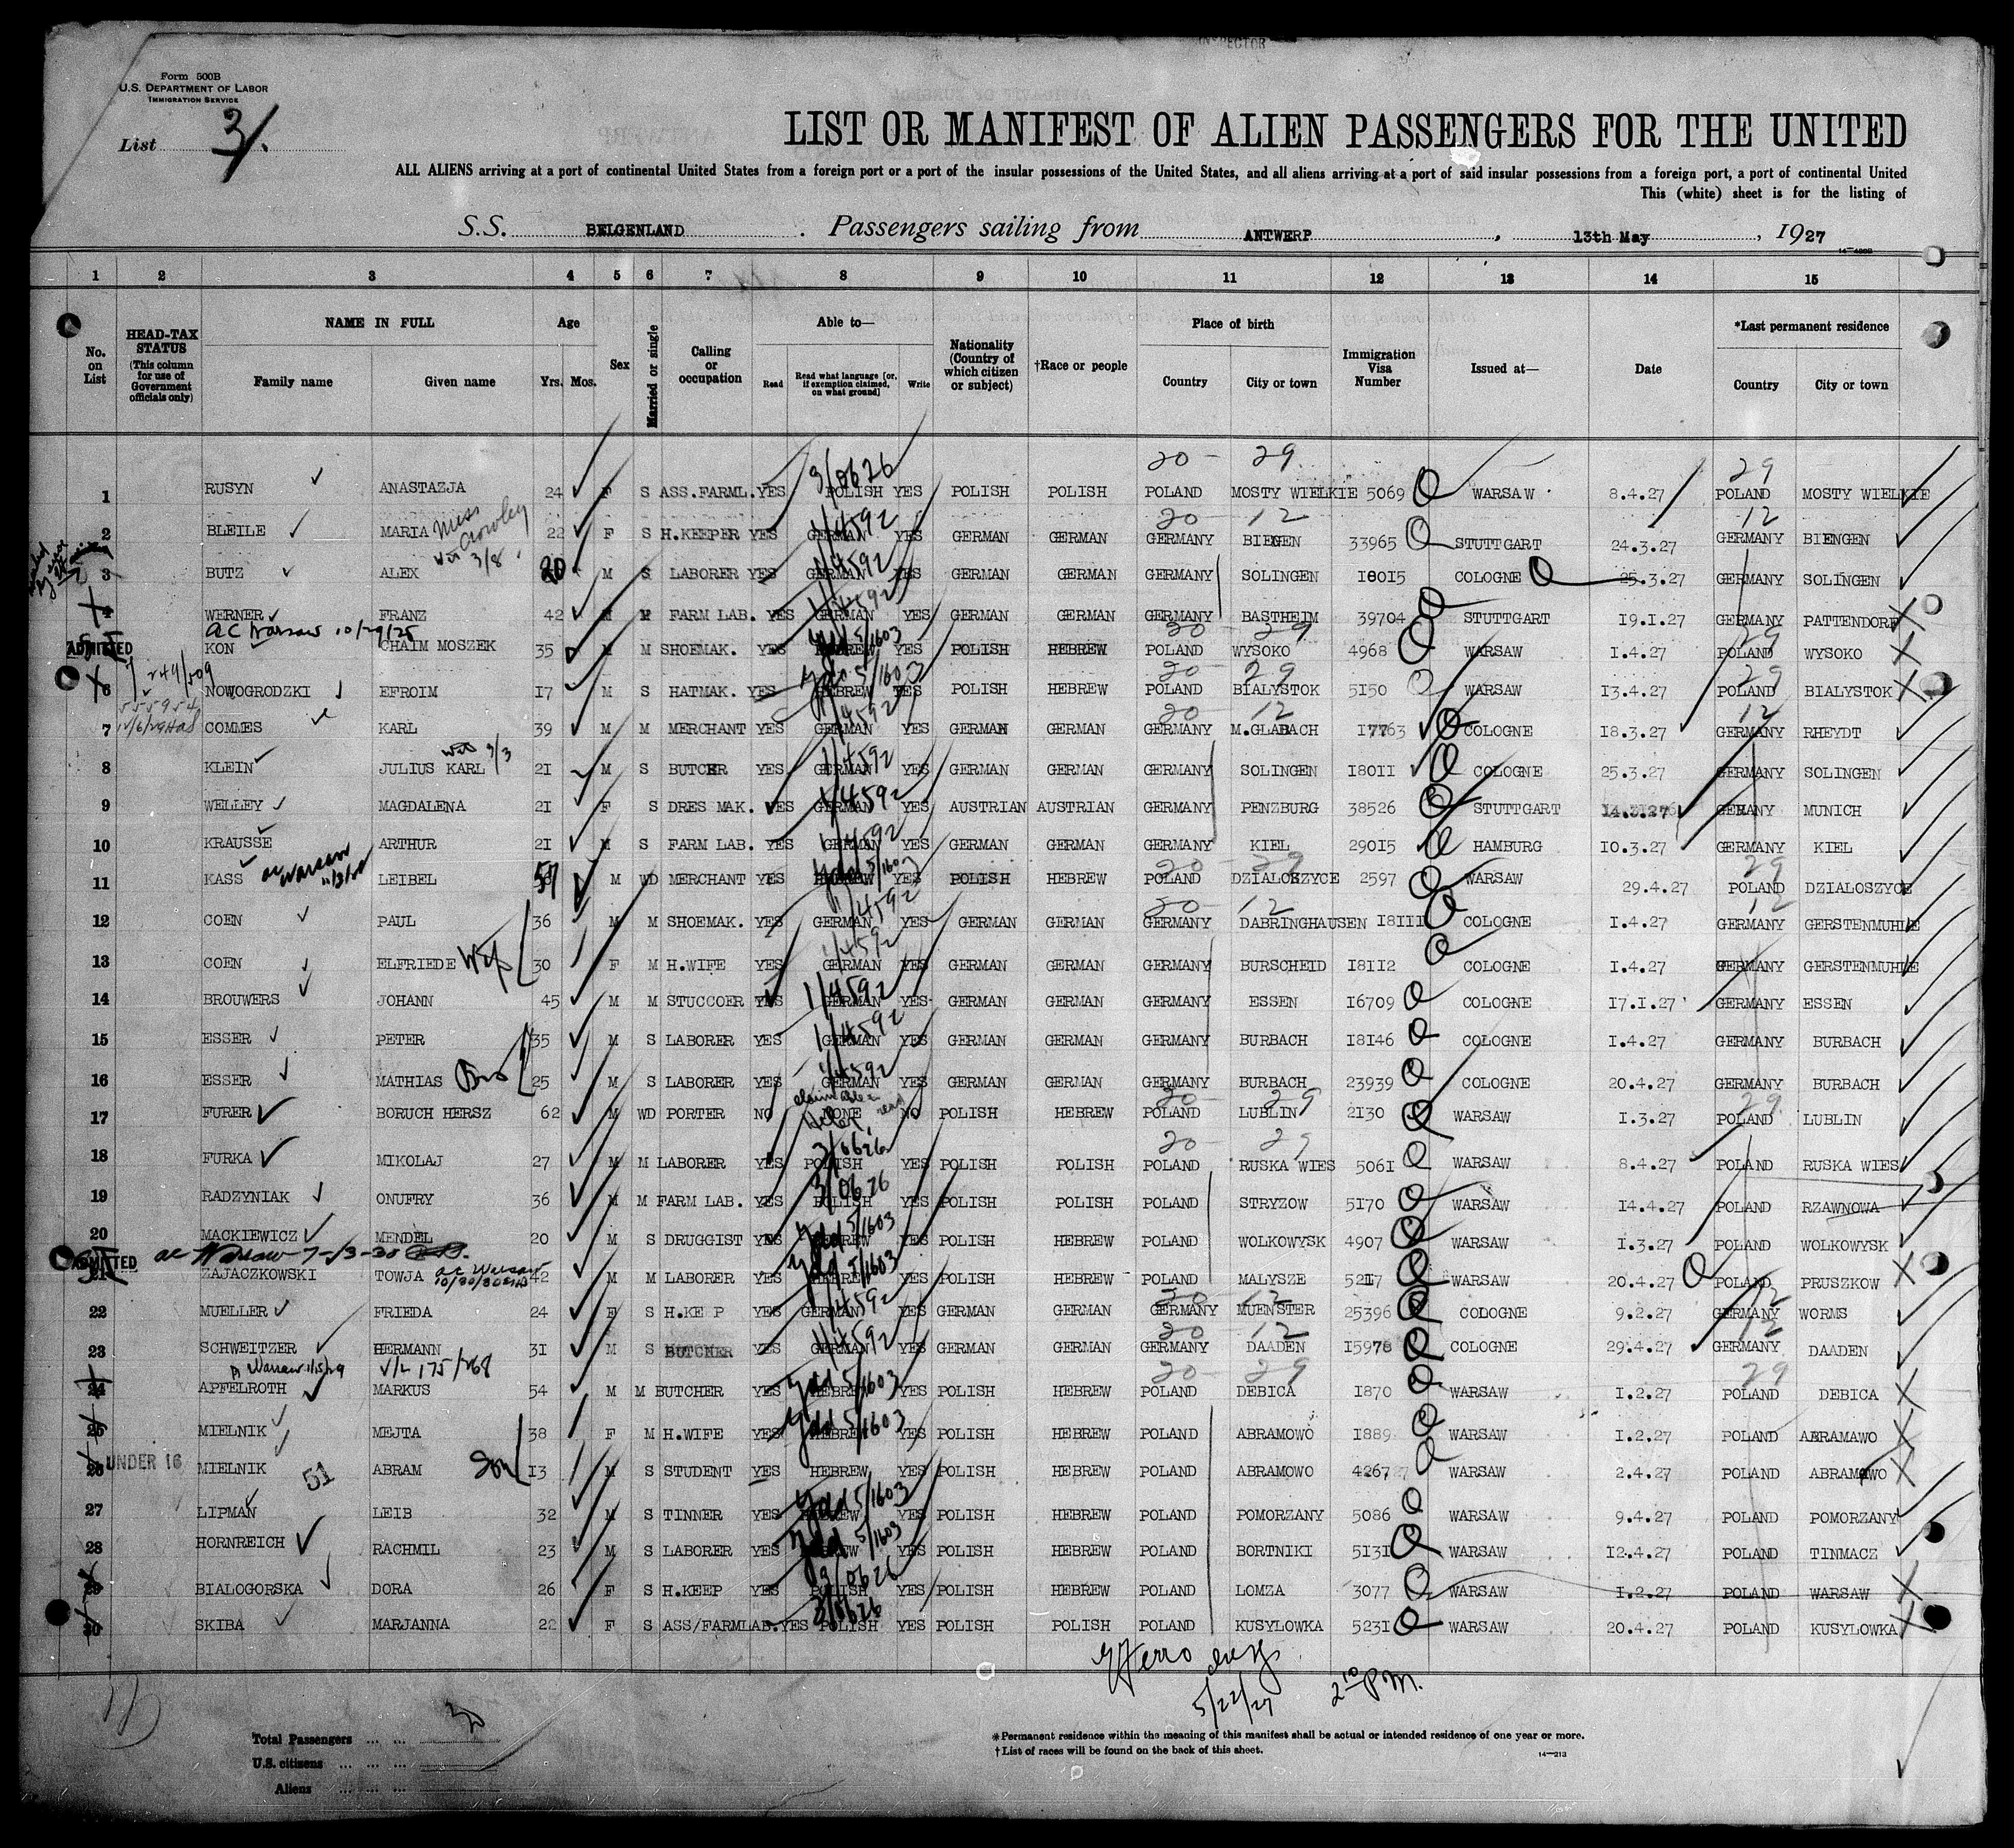 INSPECTOR
Form 500B
U.S. DEPARTMENT OF LABOR
IMMIGRATION SERVICE
List 3/.
LIST OR MANIFEST OF ALIEN PASSENGERS FOR THE UNITED
ALL ALIENS arriving at a port of continental United States from a foreign port or a port of the insular possessions of the United States, and all aliens arriving at a port of said insular possessions from a foreign port, a port of continental United
This (white) sheet is for the listing of
S.S. BELGENLAND. Passengers sailing from ANTWERP, 13th May, 1927
1 2 3 4 5 6 7 8 9 10 11 12 13 14 15
No. on List
HEAD-TAX STATUS (This column for use of Government officials only)
NAME IN FULL Family name Given name
Age Yrs. Mos.
Sex
Married or single
Calling or occupation
Able to— Read Read what language [or, if exemption claimed, on what ground] Write
Nationality (Country of which citizen or subject)
†Race or people
Place of birth Country City or town
Immigration Visa Number
Issued at—
Date
*Last permanent residence Country City or town
3/0626 20 - 29 29
1 RUSYN ANASTAZJA 24 F S ASS.FARML. YES POLISH YES POLISH POLISH POLAND MOSTY WIELKIE 5069 WARSAW 8.4.27 POLAND MOSTY WIELKIE
Miss Crowley 1/4592 20 12 12
2 BLEILE MARIA 22 F S H.KEEPER YES GERMAN YES GERMAN GERMAN GERMANY BIENGEN 33965 STUTTGART 24.3.27 GERMANY BIENGEN
3/8 1/4592
3 BUTZ ALEX 20 M S LABORER YES GERMAN YES GERMAN GERMAN GERMANY SOLINGEN 18015 COLOGNE 25.3.27 GERMANY SOLINGEN
1/4592
4 WERNER FRANZ 42 M M FARM LAB. YES GERMAN YES GERMAN GERMAN GERMANY BASTHEIM 39704 STUTTGART 19.1.27 GERMANY PATTENDORF
ac Warsaw 10/29/25 Ydd 5/1603 20 - 29 29
ADMITTED 5 KON CHAIM MOSZEK 35 M M SHOEMAK. YES HEBREW YES POLISH HEBREW POLAND WYSOKO 4968 WARSAW 1.4.27 POLAND WYSOKO
7 244/509 Ydd 5/1603 20 29 29
6 NOWOGRODZKI EFROIM 17 M S HATMAK. YES HEBREW YES POLISH HEBREW POLAND BIALYSTOK 5150 WARSAW 13.4.27 POLAND BIALYSTOK
1/4592 20 - 12 12
7 COMMES KARL 39 M M MERCHANT YES GERMAN YES GERMAN GERMAN GERMANY M.GLABACH 17763 COLOGNE 18.3.27 GERMANY RHEYDT
1/4592
8 KLEIN JULIUS KARL 21 M S BUTCHER YES GERMAN YES GERMAN GERMAN GERMANY SOLINGEN 18011 COLOGNE 25.3.27 GERMANY SOLINGEN
1/4592
9 WELLEY MAGDALENA 21 F S DRES MAK. YES GERMAN YES AUSTRIAN AUSTRIAN GERMANY PENZBURG 38526 STUTTGART 14.3.27 GERMANY MUNICH
1/4592
10 KRAUSSE ARTHUR 21 M S FARM LAB. YES GERMAN YES GERMAN GERMAN GERMANY KIEL 29015 HAMBURG 10.3.27 GERMANY KIEL
ac Warsaw Ydd 5/1603 20 - 29 29
11 KASS LEIBEL 57 M WD MERCHANT YES HEBREW YES POLISH HEBREW POLAND DZIALOSZYCE 2597 WARSAW 29.4.27 POLAND DZIALOSZYCE
1/4592 20 - 12 12
12 COEN PAUL 36 M M SHOEMAK. YES GERMAN YES GERMAN GERMAN GERMANY DABRINGHAUSEN 18111 COLOGNE 1.4.27 GERMANY GERSTENMUHLE
1/4592
13 COEN ELFRIEDE Wife 30 F M H.WIFE YES GERMAN YES GERMAN GERMAN GERMANY BURSCHEID 18112 COLOGNE 1.4.27 GERMANY GERSTENMUHLE
14 BROUWERS JOHANN 45 M M STUCCOER YES 1/4592 GERMAN YES GERMAN GERMAN GERMANY ESSEN 16709 COLOGNE 17.1.27 GERMANY ESSEN
1/4592
15 ESSER PETER 35 M S LABORER YES GERMAN YES GERMAN GERMAN GERMANY BURBACH 18146 COLOGNE 1.4.27 GERMANY BURBACH
1/4592
16 ESSER MATHIAS Bro 25 M S LABORER YES GERMAN YES GERMAN GERMAN GERMANY BURBACH 23939 COLOGNE 20.4.27 GERMANY BURBACH
20 29 29
17 FURER BORUCH HERSZ 62 M WD PORTER NO NONE NO POLISH HEBREW POLAND LUBLIN 2130 WARSAW 1.3.27 POLAND LUBLIN
3/0626 20 - 29
18 FURKA MIKOLAJ 27 M M LABORER YES POLISH YES POLISH POLISH POLAND RUSKA WIES 5061 WARSAW 8.4.27 POLAND RUSKA WIES
3/0626
19 RADZYNIAK ONUFRY 36 M M FARM LAB. YES POLISH YES POLISH POLISH POLAND STRYZOW 5170 WARSAW 14.4.27 POLAND RZAWNOWA
Ydd 5/1603
20 MACKIEWICZ MENDEL 20 M S DRUGGIST YES HEBREW YES POLISH HEBREW POLAND WOLKOWYSK 4907 WARSAW 1.3.27 POLAND WOLKOWYSK
ac Warsaw 7-13-30 ac Warsaw 10/30/30 Ydd 5/1603
ADMITTED 21 ZAJACZKOWSKI TOWJA 42 M M LABORER YES HEBREW YES POLISH HEBREW POLAND MALYSZE 5217 WARSAW 20.4.27 POLAND PRUSZKOW
1/4592 20 12 12
22 MUELLER FRIEDA 24 F S H.KE P YES GERMAN YES GERMAN GERMAN GERMANY MUENSTER 25396 COLOGNE 9.2.27 GERMANY WORMS
1/4592 20 - 12 12
23 SCHWEITZER HERMANN 31 M S BUTCHER YES GERMAN YES GERMAN GERMAN GERMANY DAADEN 15978 COLOGNE 29.4.27 GERMANY DAADEN
Warsaw 1/15/29 V/L 175/268 Ydd 5/1603 20 - 29 29
24 APFELROTH MARKUS 54 M M BUTCHER YES HEBREW YES POLISH HEBREW POLAND DEBICA 1870 WARSAW 1.2.27 POLAND DEBICA
Ydd 5/1603
25 MIELNIK MEJTA 38 F M H.WIFE YES HEBREW YES POLISH HEBREW POLAND ABRAMOWO 1889 WARSAW 1.2.27 POLAND ABRAMAWO
26 UNDER 16 MIELNIK 51 ABRAM Son 13 M S STUDENT YES HEBREW YES POLISH HEBREW POLAND ABRAMOWO 4267 WARSAW 2.4.27 POLAND ABRAMOWO
Ydd 5/1603
27 LIPMAN LEIB 32 M S TINNER YES HEBREW YES POLISH HEBREW POLAND POMORZANY 5086 WARSAW 9.4.27 POLAND POMORZANY
Ydd 5/1603
28 HORNREICH RACHMIL 23 M S LABORER YES HEBREW YES POLISH HEBREW POLAND BORTNIKI 5131 WARSAW 12.4.27 POLAND TINMACZ
3/0626
29 BIALOGORSKA DORA 26 F S H.KEEP YES POLISH YES POLISH HEBREW POLAND LOMZA 3077 WARSAW 1.2.27 POLAND WARSAW
3/0626
30 SKIBA MARJANNA 22 F S ASS/FARMLAB. YES POLISH YES POLISH POLISH POLAND KUSYLOWKA 5231 WARSAW 20.4.27 POLAND KUSYLOWKA
5/22/27 2 10 P.M.
Total Passengers ... ... 30
U.S. citizens ... ... ...
Aliens ... ... ...
*Permanent residence within the meaning of this manifest shall be actual or intended residence of one year or more.
†List of races will be found on the back of this sheet.
14—213